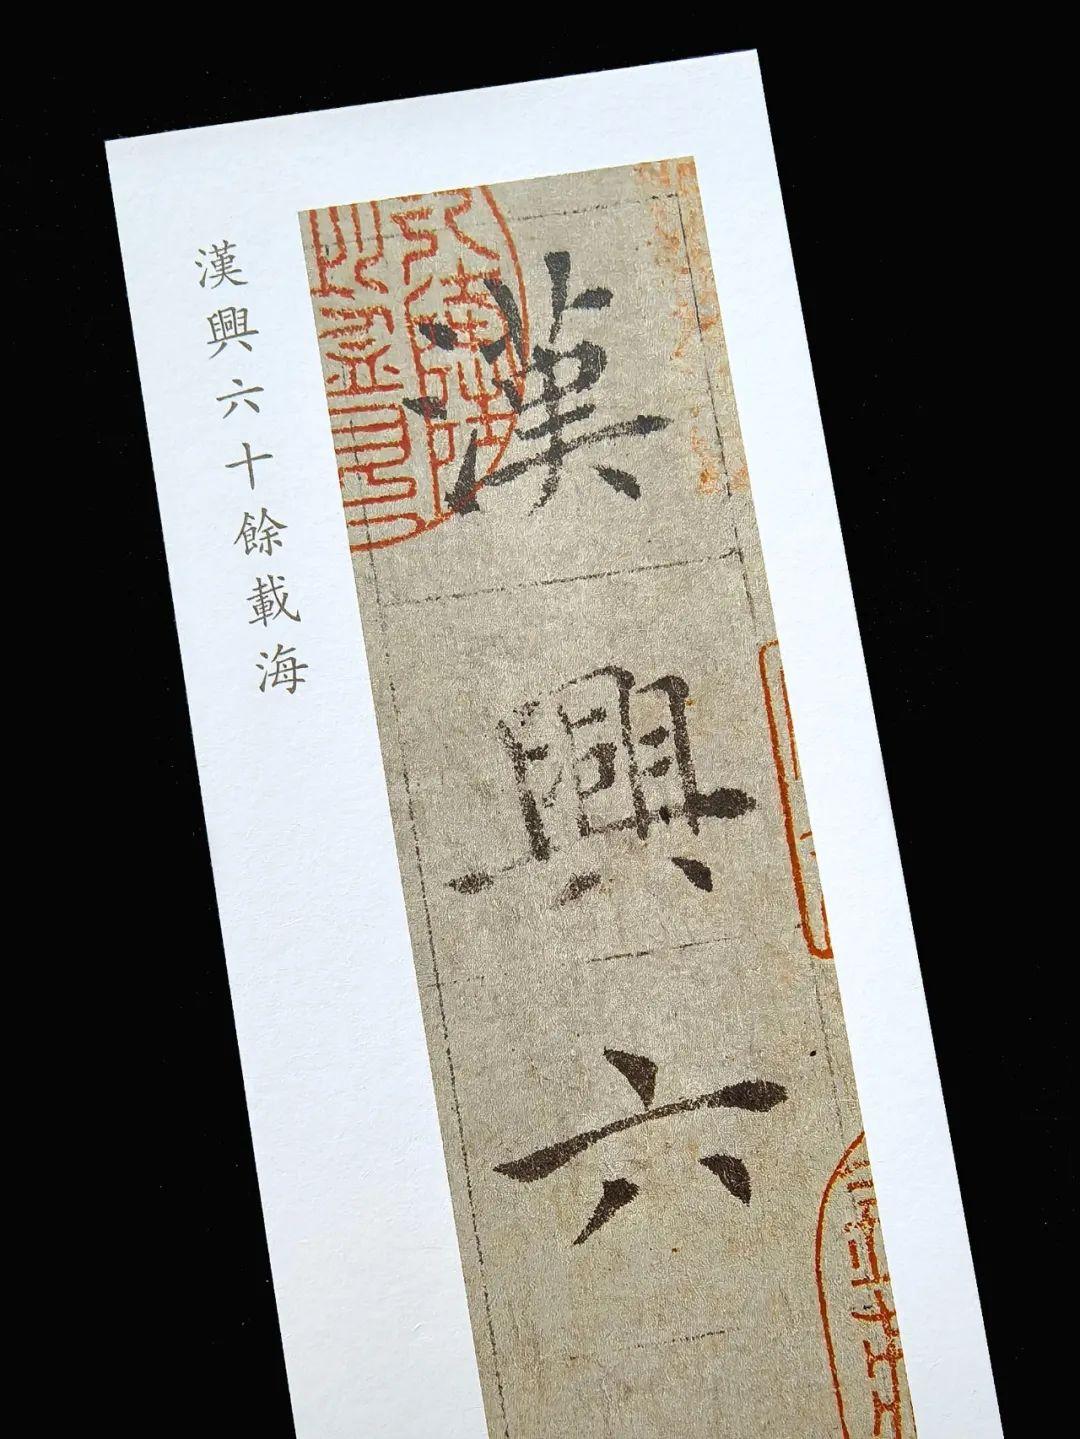 漢興六十餘載海
漢興六